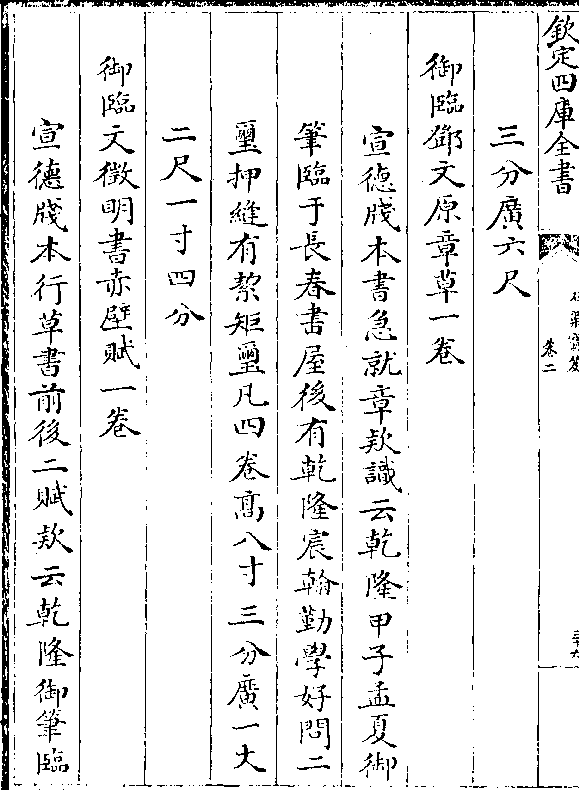 欽定四庫全書
卷二
三分廣六尺
御臨鄧文原章草一卷
宣德牋本書急就章欵識云乾隆甲子孟夏御
筆臨于長春書屋後有乾隆宸翰勤學好問二
璽押縫有絜矩璽凡四卷高八寸三分廣一丈
二尺一寸四分
御臨文徵明書赤壁賦一卷
宣德牋本行草書前後二賦欵云乾隆御筆臨